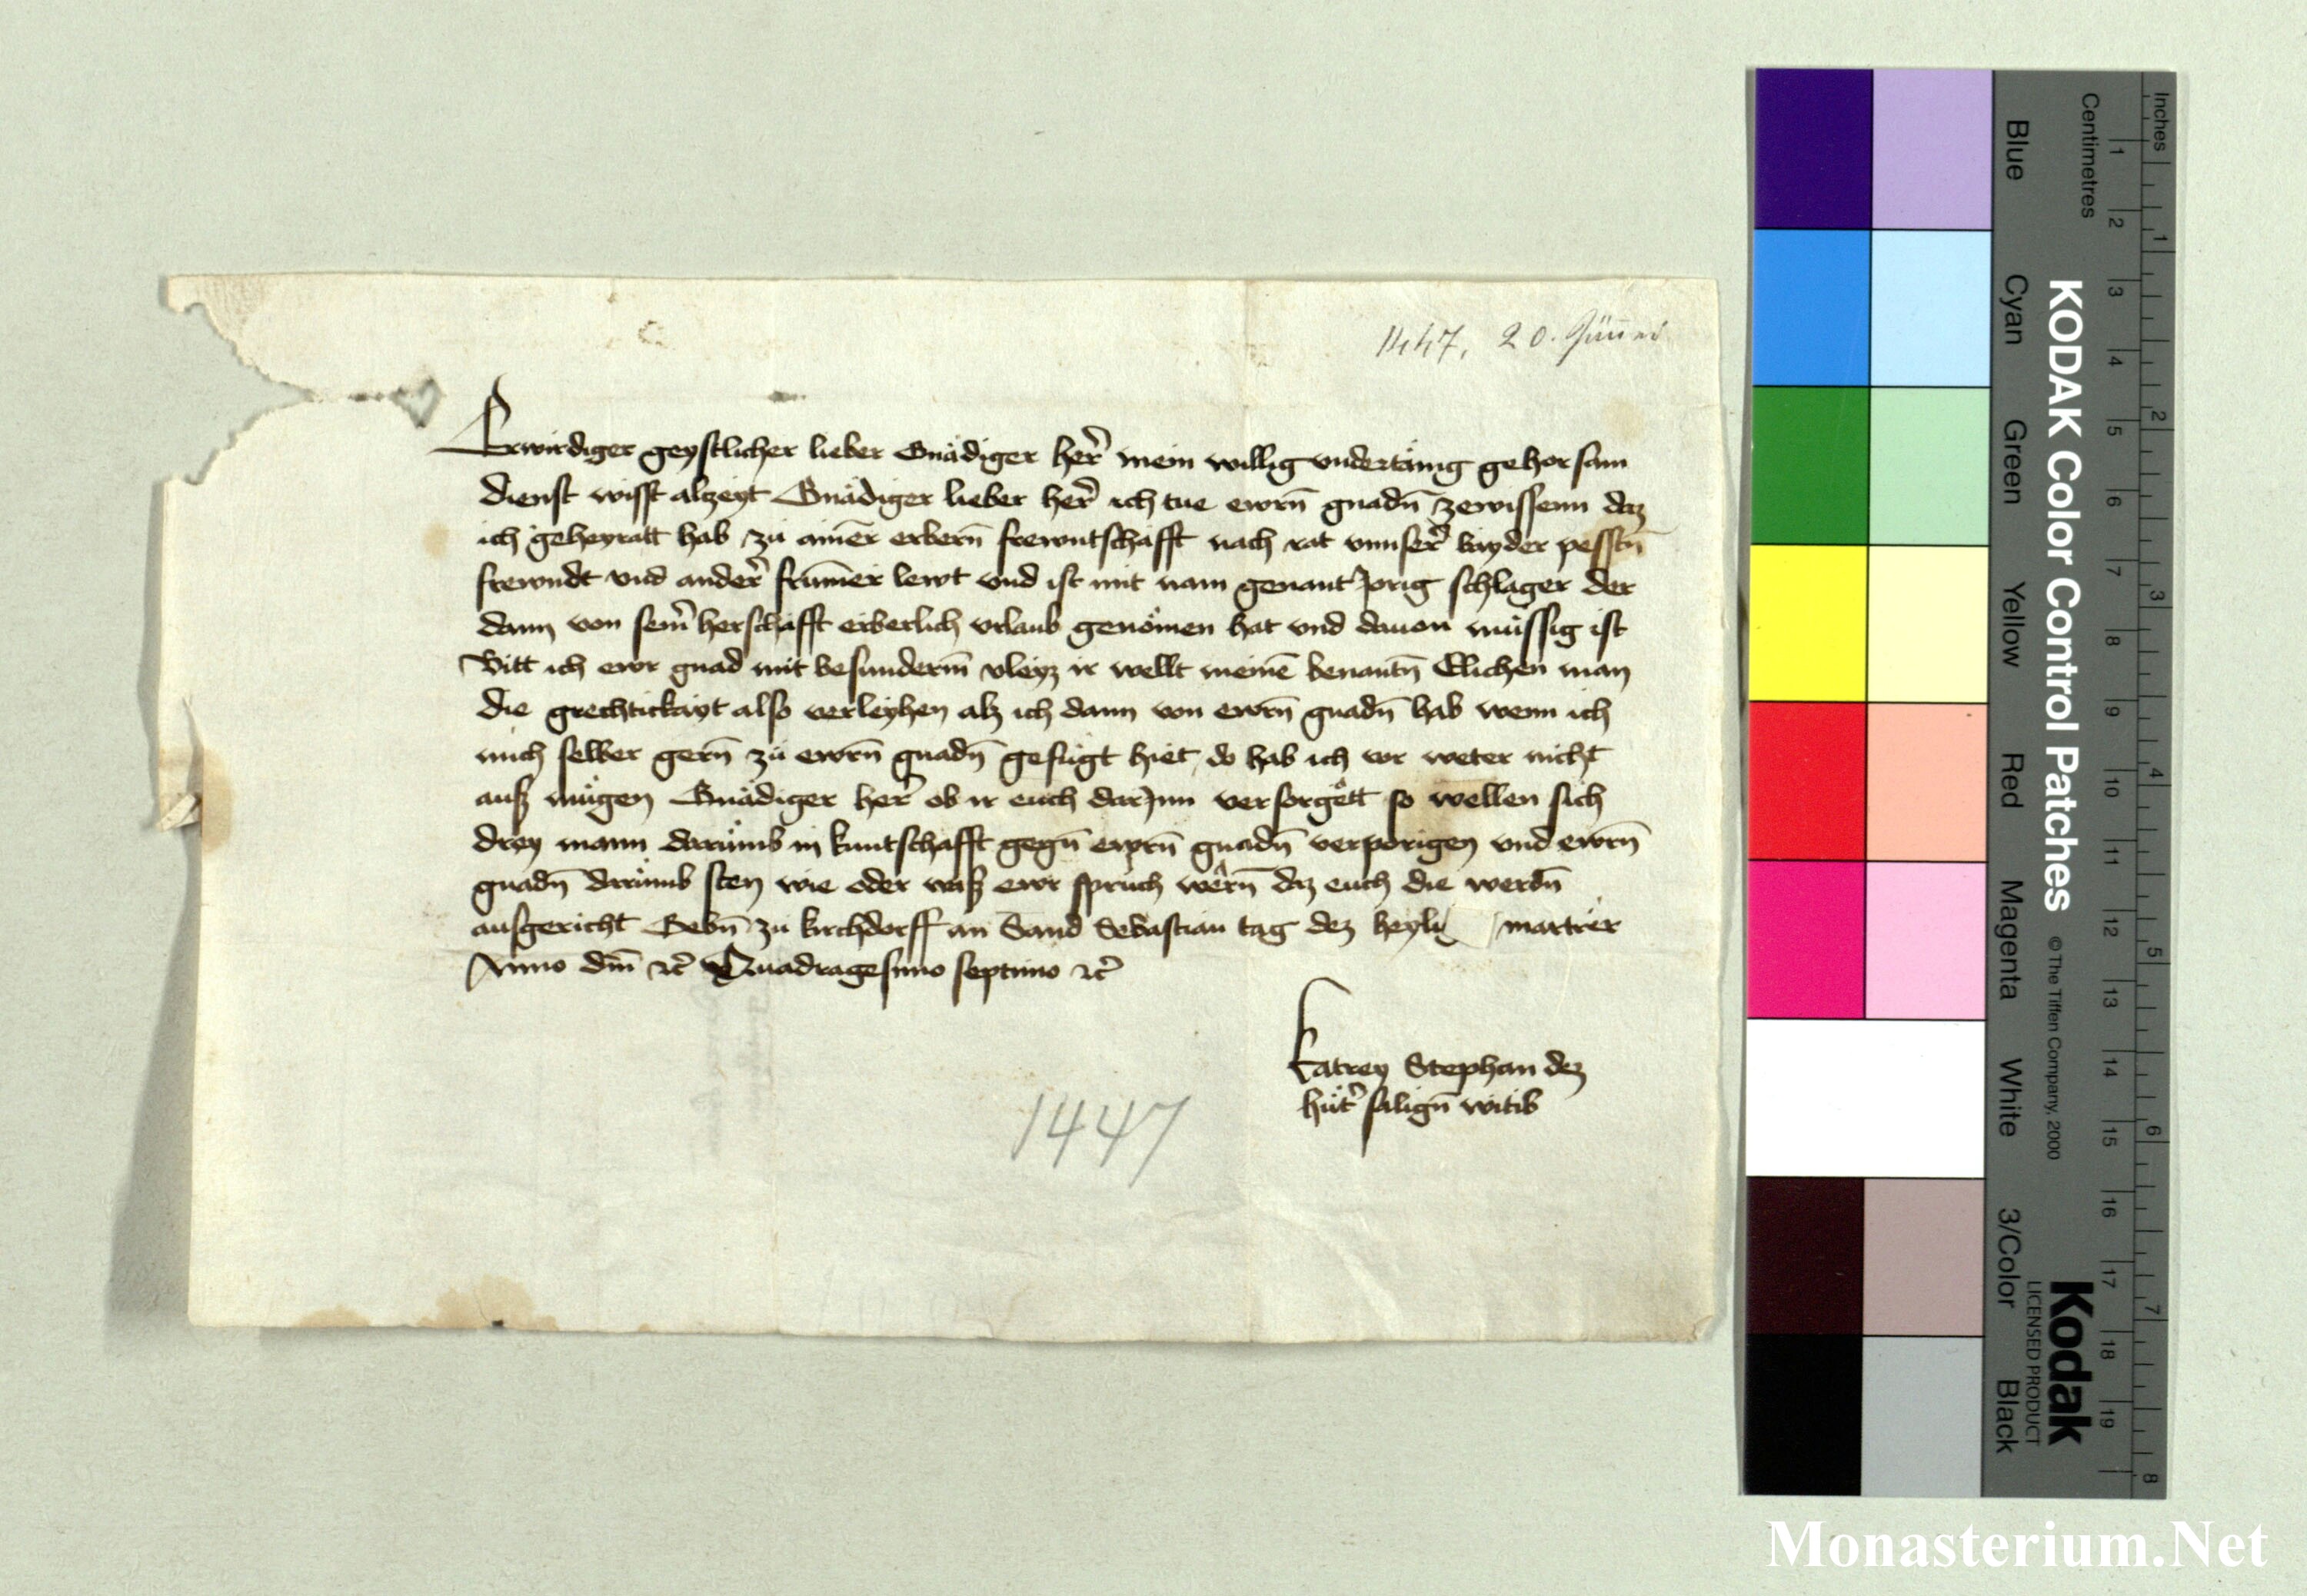 1447, 20. Jänner
Erwirdiger geystlicher lieber Gnädiger her̄ mein willig vndertänig gehorsam
dienst wisst alzeyt Gnädiger lieber her̄ ich tue ewrn̄ gnadn̄ zewissenn daz
ich geheyratt hab zu aimēr erbern̄ frewntschafft nach rat vnnser̄ bayder pesstn̄
frewndt vnd ander̄ frūmer lewt vnd ist mit nam genant Jorig schlager der
dann von seim̄ herschafft erberlich vrlaub genömen hat vnd dauon müssig ist
Bitt ich ewr gnad mit besunderm̄ vleyz ir wellt meinē benantn̄ Elichen man
die grechtickayt also verleyhen alz ich dann von ewrn̄ gnadn̄ hab wenn ich
mich selber gern̄ zu ewrn̄ gnadn̄ gefügt hiet do hab ich vor weter nicht
auß mügen Gnädiger her̄ ob ir euch darJnn versorgett so wellen sich
drey mann darümb in kuntschafft gegn̄ ewrn̄ gnadn̄ verporigen vnd ewrn̄
gnadn̄ darümb sten wie oder waß ewr spruch wern̄ daz euch die werdn̄
ausgericht Gebn̄ zu kirchdorff an Sand Sebastian tag dez heylig martrer
Anno dm̄ etc̄ Quadragesimo septimo etc̄
Katrey Stephan dez
hüt̄ salign̄ witib
1447
KODAK Color Control Patches
© The Tiffen Company, 2000
Kodak
LICENSED PRODUCT
Inches
1 2 3 4 5 6 7 8
Centimetres
1 2 3 4 5 6 7 8 9 10 11 12 13 14 15 16 17 18 19
Blue
Cyan
Green
Yellow
Red
Magenta
White
3/Color
Black
Monasterium.Net